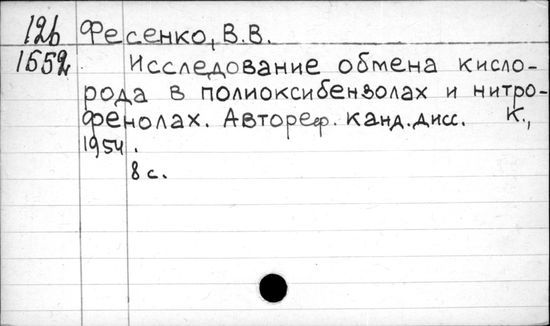 126 Фесенко, В.В.
1552 Исследование обмена кисло-
рода в полиоксибензолах и нитро-
фенолах. Автореф. канд. дисс. К.,
1954.
8 с.